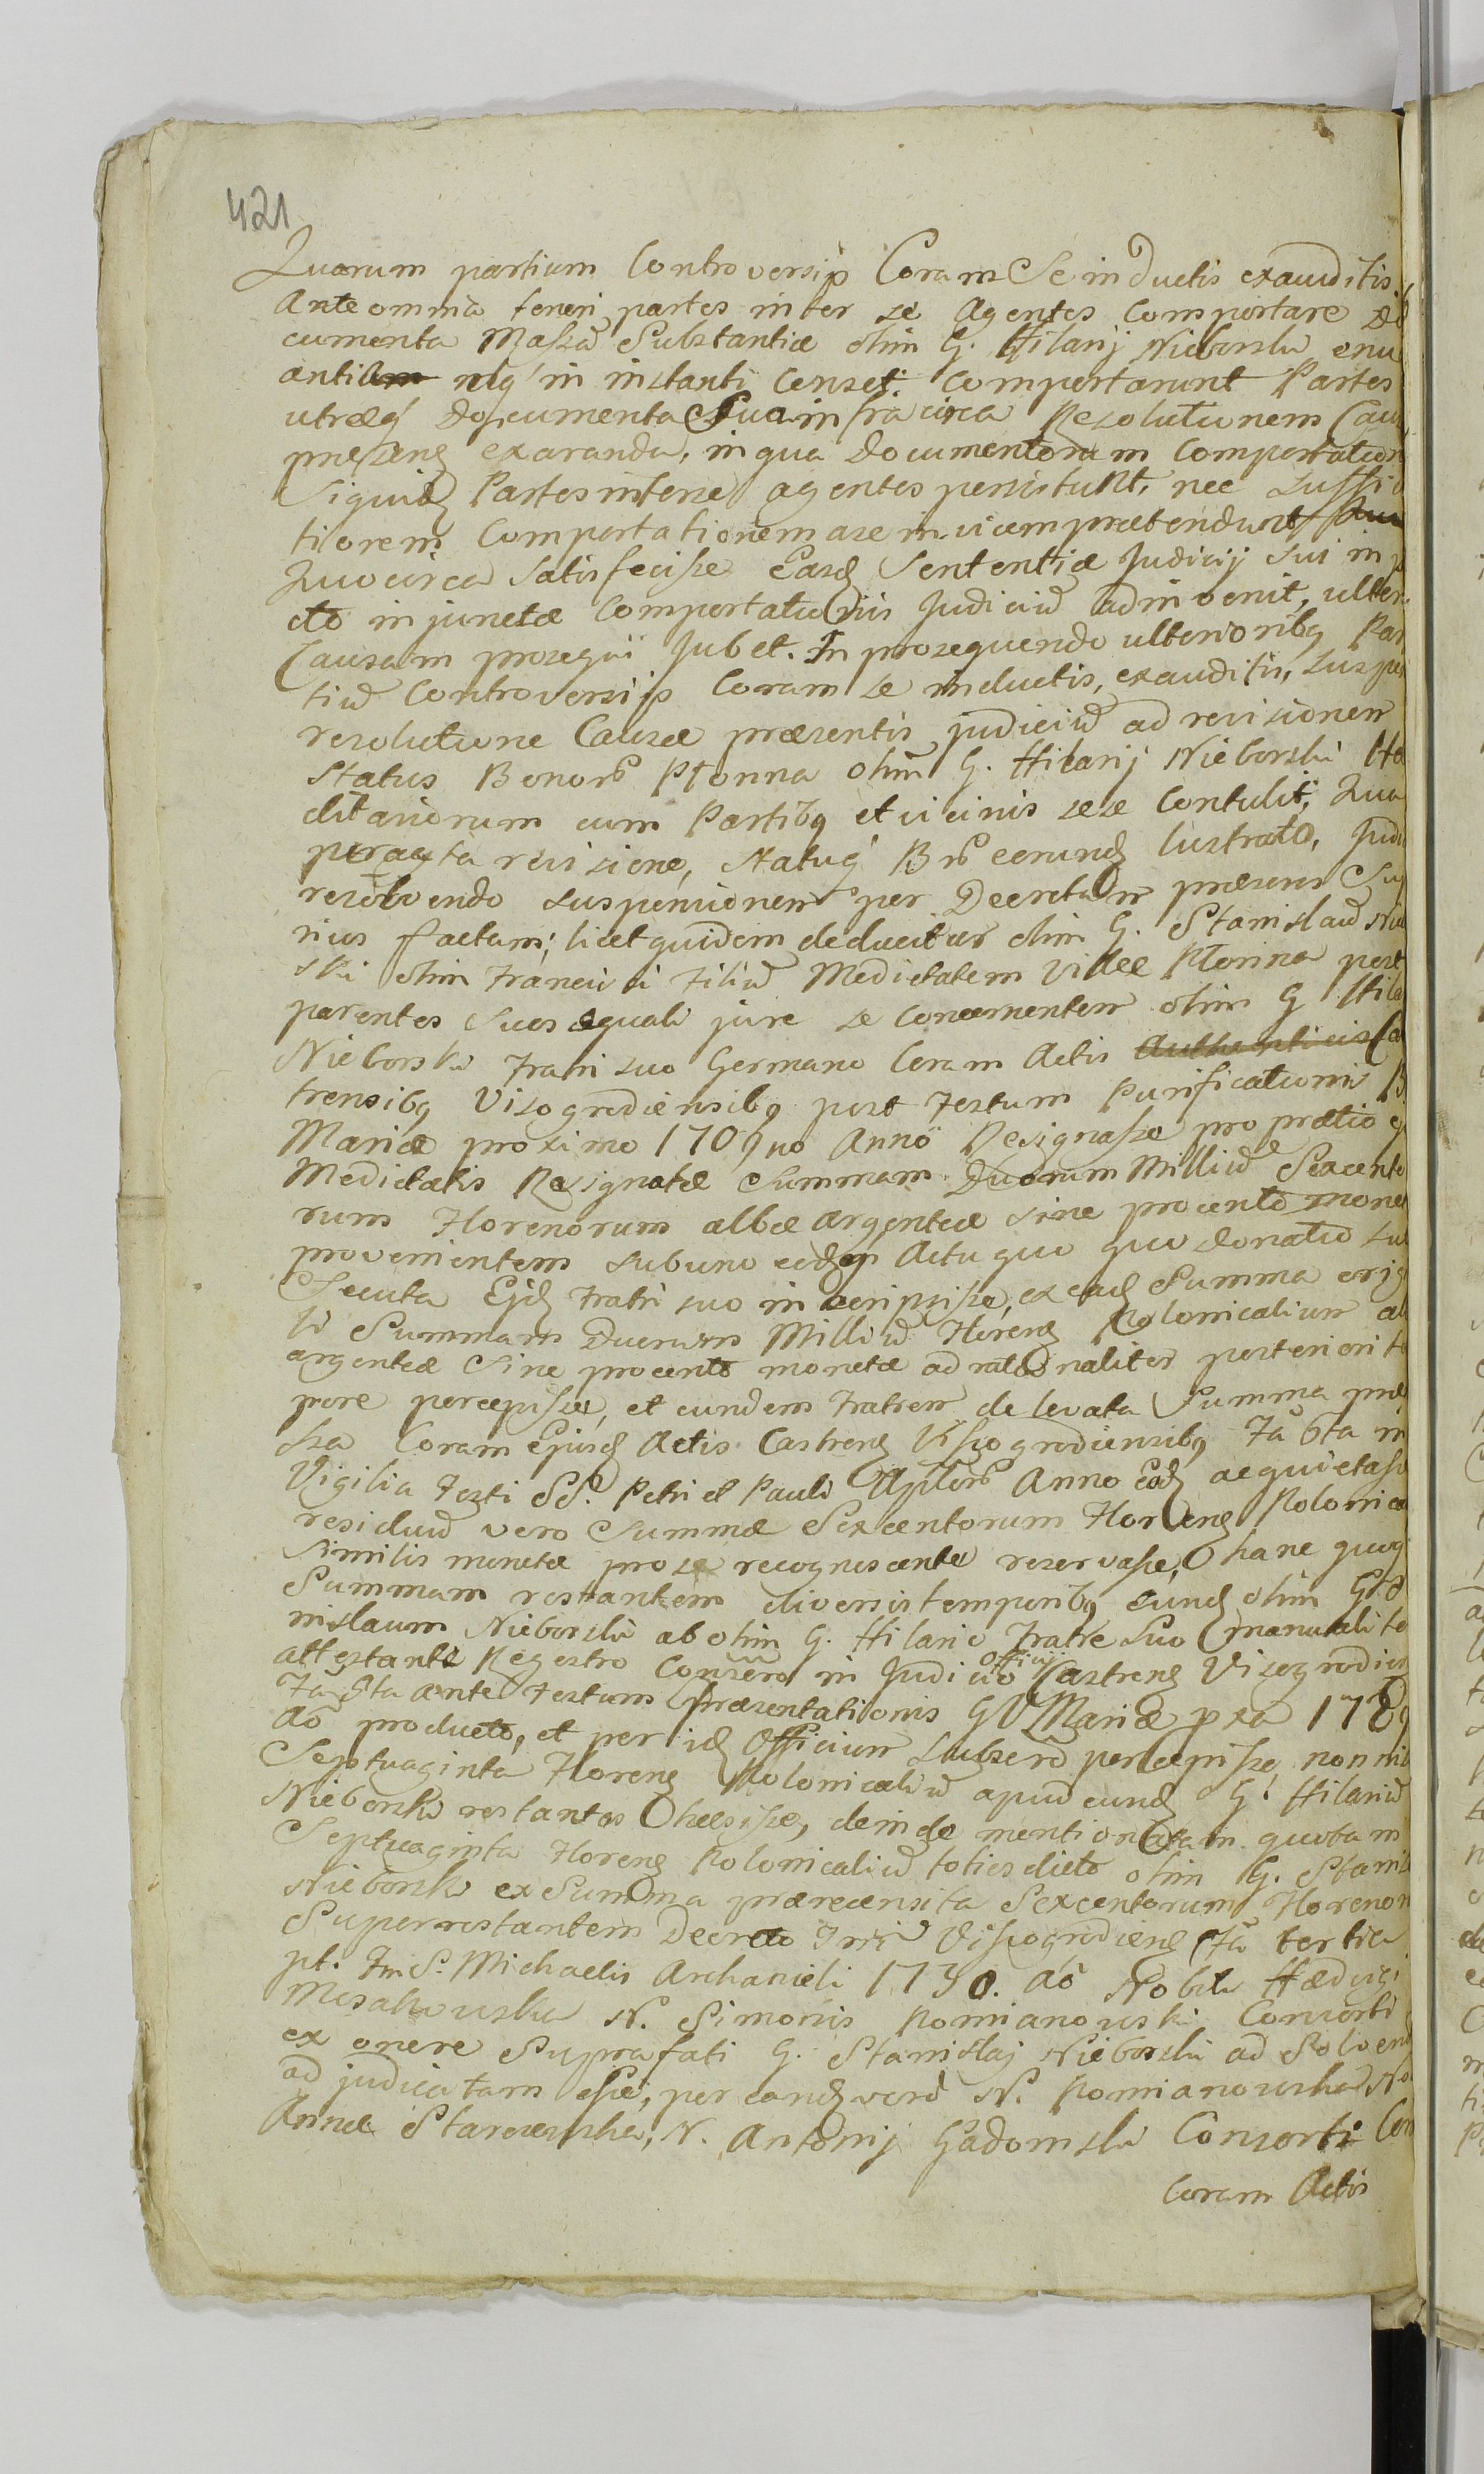 421
Quorum partium Controversijs Coram Se inductis exauditis.
Ante omnia teneri partes inter se Agentes Comportare Do
cumenta Massã Substantiæ olim G. Hilarij Nieborski enu
antia neq in instanti Censet. Comportarunt Partes
utræq Documenta Sua infra circa Resolutionem Cau
præsens exaranda, in qua documentorum Comportation
Siquid Partes inter se agentes persistunt, nec Suffici
tiorem Comportationem a se invicem prætendunt
Quocirca Satisfecisse Easd Sententiæ Judicij sui in p
cto injunctæ Comportationis Judiciũ adinvenit, ulteri
Causam prosequi Jubet. In prosequendo ulterioribq Par
tiũ Controversijs Coram se inductis, exauditis, Suspen
resolutione Causæ præsentis judiciũ ad revisionem
Status Bonorũ Płonna olim G. Hilarij Nieborski Hæ
ditariorum cum Partibq et vicinis sese Contulit, Qua
peracta revisione, Statuq Brũ eorund lustrato, Judi
resolvendo suspensionem per Decretum præsens Sup
rius factam; licet quidem deducitur olim G. Stanislaũ Nie
ski olim Francisci Filiũ Medietatem Villæ Płonna post
parentes Suos æquali jure se Concernentem olim G Hila
Nieborski Fratri suo Germano Coram Actis Authenticis Ca
trensibq Visogrodiensibq post Festum Purificationis B.
Mariæ proximo 1709no Anno Resignasse pro prætio ej
Medietatis Resignatæ Summam Duorum Milliũ Sexcento
rum Florenorum albæ argenteæ sine procento mone
provenientem sub uno eodq Actu quo quo donatio su
Secuta Ejd Fratri suo inscripsisse, ex ead Summa orig
li Summam Duorum Milliũ Floren Polonicalium al
argenteæ Sine procento monetæ ad rationaliter posteriori te
pore percepisse, et eundem Fratrem de levata Summa præ
Coram Ejusd Actis Castrens Vissogrodiensibq Fã 6ta in
Vigilia Festi SS. Petri et Pauli Aplorũ Anno Eod acquietasse
residuũ vero Summæ Sexcentorum Floren Polonica
Similis monetæ pro se recognoscente reservasse, hanc quoq
Summam restantem diversis temporibq eund olim G. S
nislaum Nieborski ab olim G. Hilario Fratre Suo manuali te
attestante Regestro Consero in Judicio Officij Castrens Visogrodien
Fã 6ta ante Festum Præsentationis G V Mariæ p xa
Ao producto, et per id Officium Subsero percepisse, non nisi
Septuaginta Floren Polonicaliũ apud eund G. Hilariũ
Nieborski restantes hæsisse, deinde mentionatam quotam
Septuaginta Floren Polonicaliũ toties dicto olim G. Stanis
Nieborski ex Summa prærecensita Sexcentorum Florenor
Superrestantem Decreto Vissogrodiens Fã tertia
pt. Fm S. Michaelis Archanieli 1730. Ao Nobili Hædvigi
N. Simonis Pomianowski Consorti
ex onere Suprafati G. Stanislaj Nieborski ad Solven
adjudicatam esse, per eand vero N. Pomianowska No
Annæ N. Antonij Gadomski Consorti Con
Coram Actis